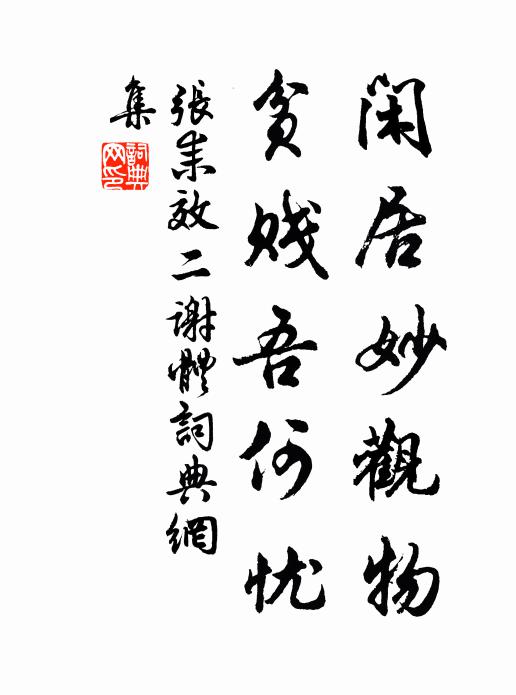 閑居妙觀物
貧賤吾何忧
張耒效二謝體詞典網
集
詞典網印